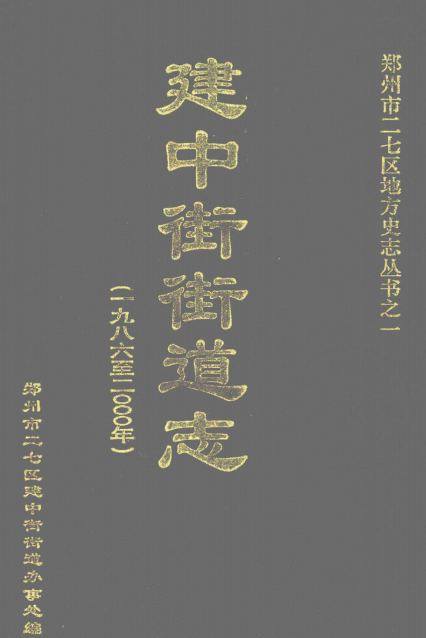 郑州市二七区地方史志丛书之一
建中街街道志
(一九八六至二〇〇〇年)
郑州市二七区建中街街道办事处编